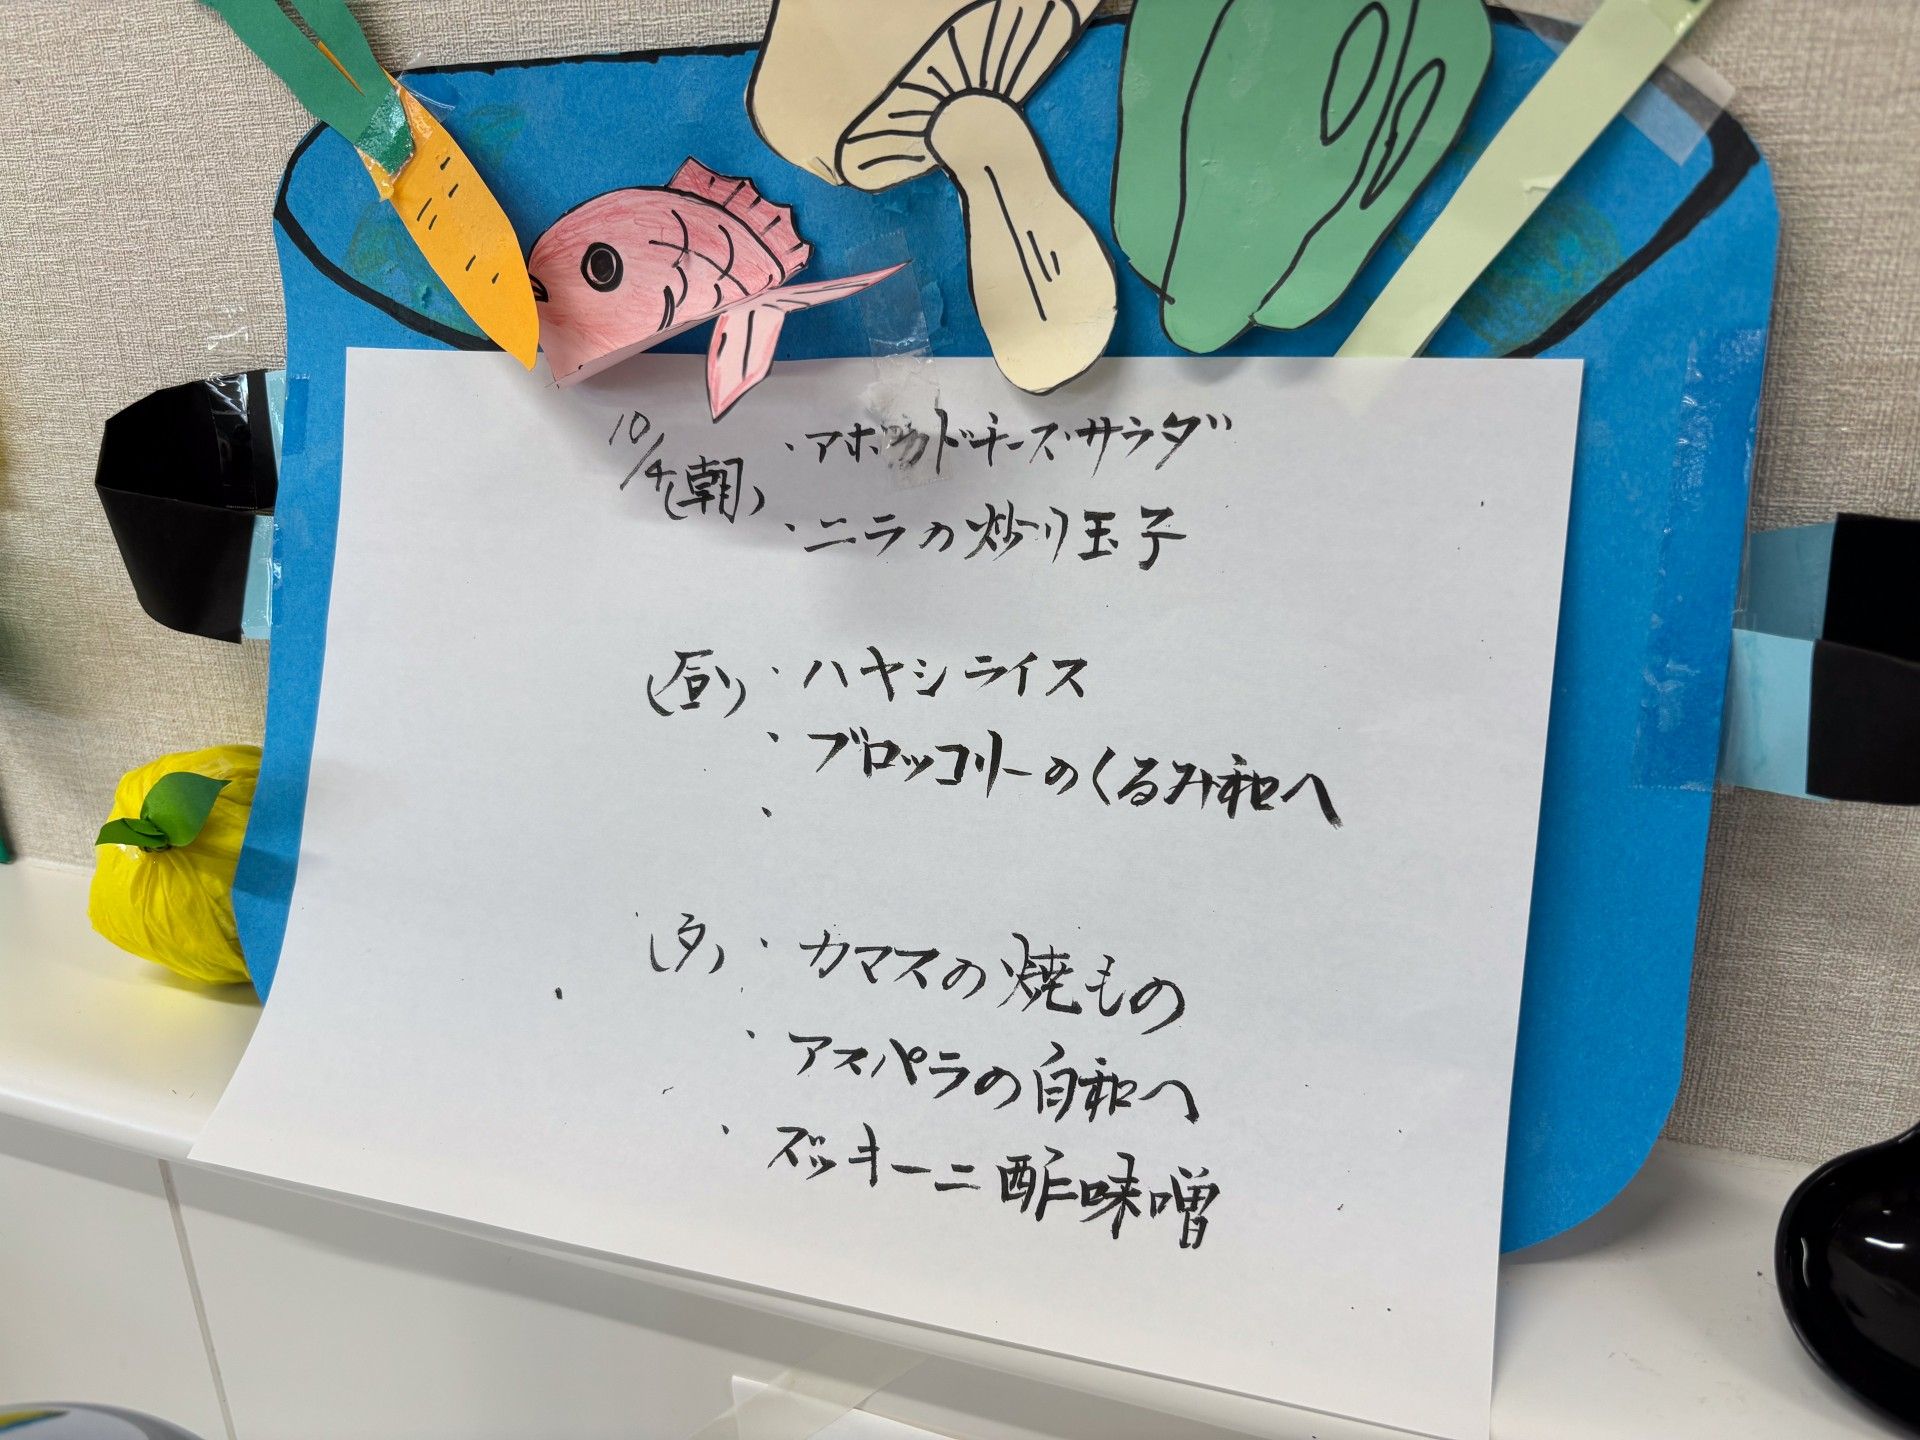 10/4(朝)・アボカドチーズサラダ
・ニラの炒り玉子
(昼)・ハヤシライス
・ブロッコリーのくるみ和へ
・
(夕)・カマスの焼もの
・アスパラの白和へ
・ズッキーニ酢味噌